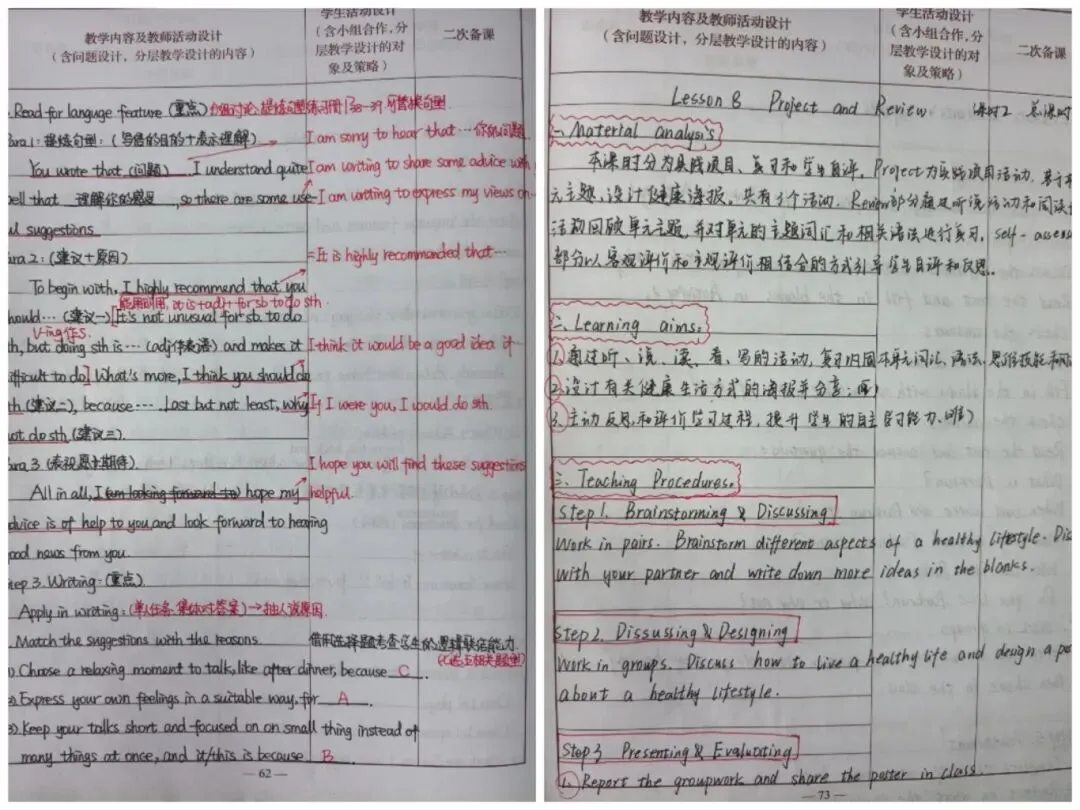 教学内容及教师活动设计
(含问题设计,分层教学设计的内容)
学生活动设计
(含小组合作,分
层教学设计的对
象及策略)
二次备课
Read for languge feature (重点) 分组讨论,提炼句型 练习册P38-39.可替换句型.
ara 1: 提炼句型: (写信的目的+表示理解)
I am sorry to hear that … 你的问题
You wrote that (问题) . I understand quite
I am writing to share some advice with
ell that 理解你的感受 , so there are some use-
I am writing to express my views on…
ul suggestions
ara 2: (建议+原因)
It is highly recommended that …
To begin with, I highly recommend that you
能用可用, it is + adj + for sb to do sth
hould… (建议一) [It's not unusual for sb. to do
V-ing作S.
th, but doing sth is … (adj作表语) and makes it
I think it would be a good idea if
ifficult to do] What's more, I think you should do
th (建议二), because …. Last but not least, why
If I were you, I would do sth
not do sth (建议三).
ara 3. (表祝愿+期待).
I hope you will find these suggestions
All in all, I (am looking forward to) hope my
helpful
dvice is of help to you and look forward to hearing
ood news from you.
tep 3. Writing: (重点).
Apply in writing: (单人任务.集体对答案) → 抽人说原因.
Match the suggestions with the reasons.
借用选择题考查学生的逻辑联结能力.
1) Choose a relaxing moment to talk, like after dinner, because C .
2) Express your own feelings in a suitable way, for A .
3) Keep your talks short and focused on on small thing instead of
many things at once, and it/this is because B .
— 62 —
教学内容及教师活动设计
(含问题设计,分层教学设计的内容)
学生活动设计
(含小组合作,分
层教学设计的对
象及策略)
二次备课
Lesson 8 Project and Review. 课时2 总课时
一. Material analysis
本课时分为实践项目、复习和学生自评, Project 为实践项目活动. 基于本
元主题,设计健康海报,共有3个活动. Review部分通过听说活动和阅读
活动回顾单元主题,并对单元的主题词汇和相关语法进行复习. self-assess
部分以客观评价和主观评价相结合的方式引导学生自评和反思.
二. Learning aims.
1. 通过听、说、读、看、写的活动,复习巩固本单元词汇、语法、思维技能
2. 设计有关健康生活方式的海报并分享;
3. 主动反思和评价学习过程,提升学生的自主学习能力.
三. Teaching Procedures.
Step 1. Brainstorming & Discussing
Work in pairs. Brainstorm different aspects of a healthy lifestyle. Dis
with your partner and write down more ideas in the blanks.
Step 2. Dissussing & Designing
Work in groups. Discuss how to live a healthy life and design a po
about a healthy lifestyle.
Step 3 Presenting & Evaluating
1. Report the groupwork and share the poster in class.
— 73 —